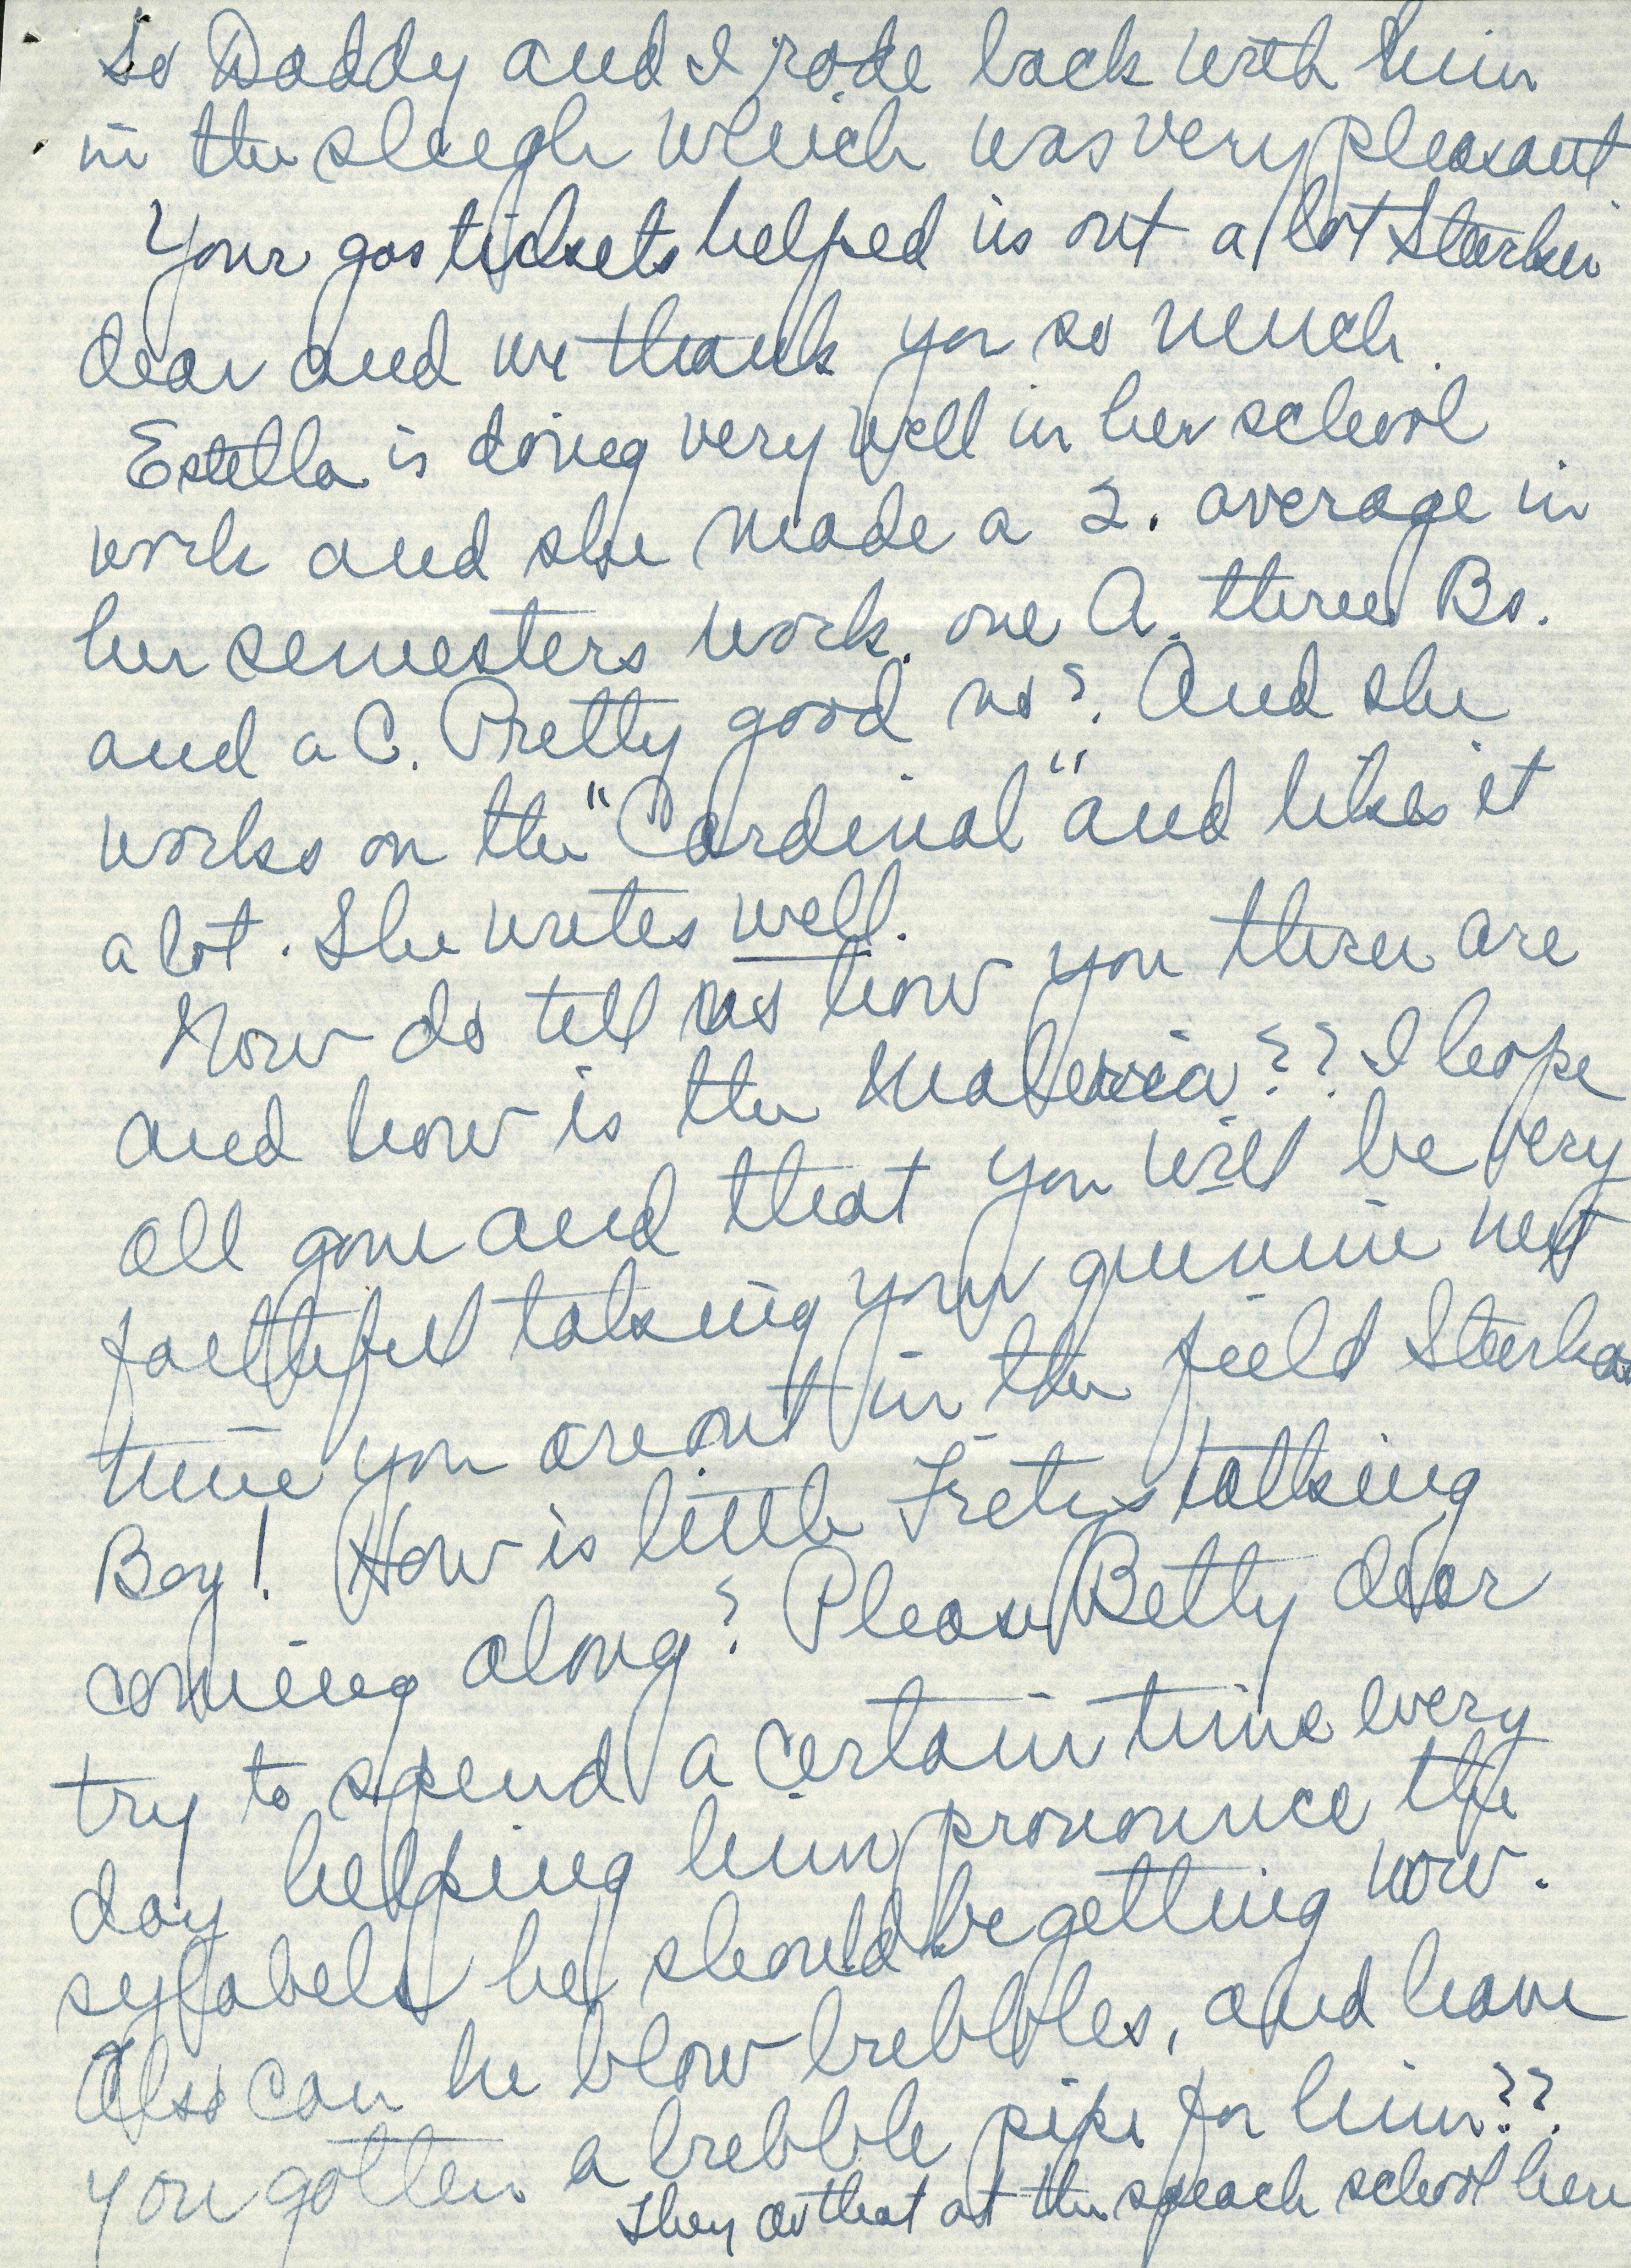 So Daddy and I rode back with him
in the sleigh which was very pleasant
Your gas tickets helped us out a lot Starker
dear and we thank you so much.
Estella is doing very well in her school
work and she made a 2. average in
her semesters work. one A. three Bs.
and a C. Pretty good no? And she
works on the "Cardinal" and likes it
a lot. She writes well.
Now do tell us how you three are
and how is the Maleria?? I hope
all gone and that you will be very
faithful taking your quinine next
time you are out in the field Starker
Boy! How is little Frets talking
coming along? Please Betty dear
try to spend a certain time every
day helping him pronounce the
sylabels he should be getting now.
Also can he blow bubbles, and have
you gotten a bubble pipe for him??
They do that at the speach school here